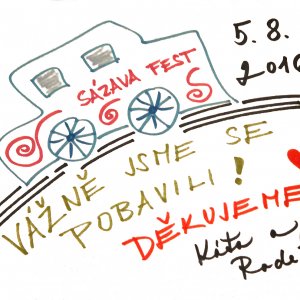 SÁZAVA FEST
5. 8.
VÁŽNĚ JSME SE
POBAVILI!
DĚKUJEME
Káťa a